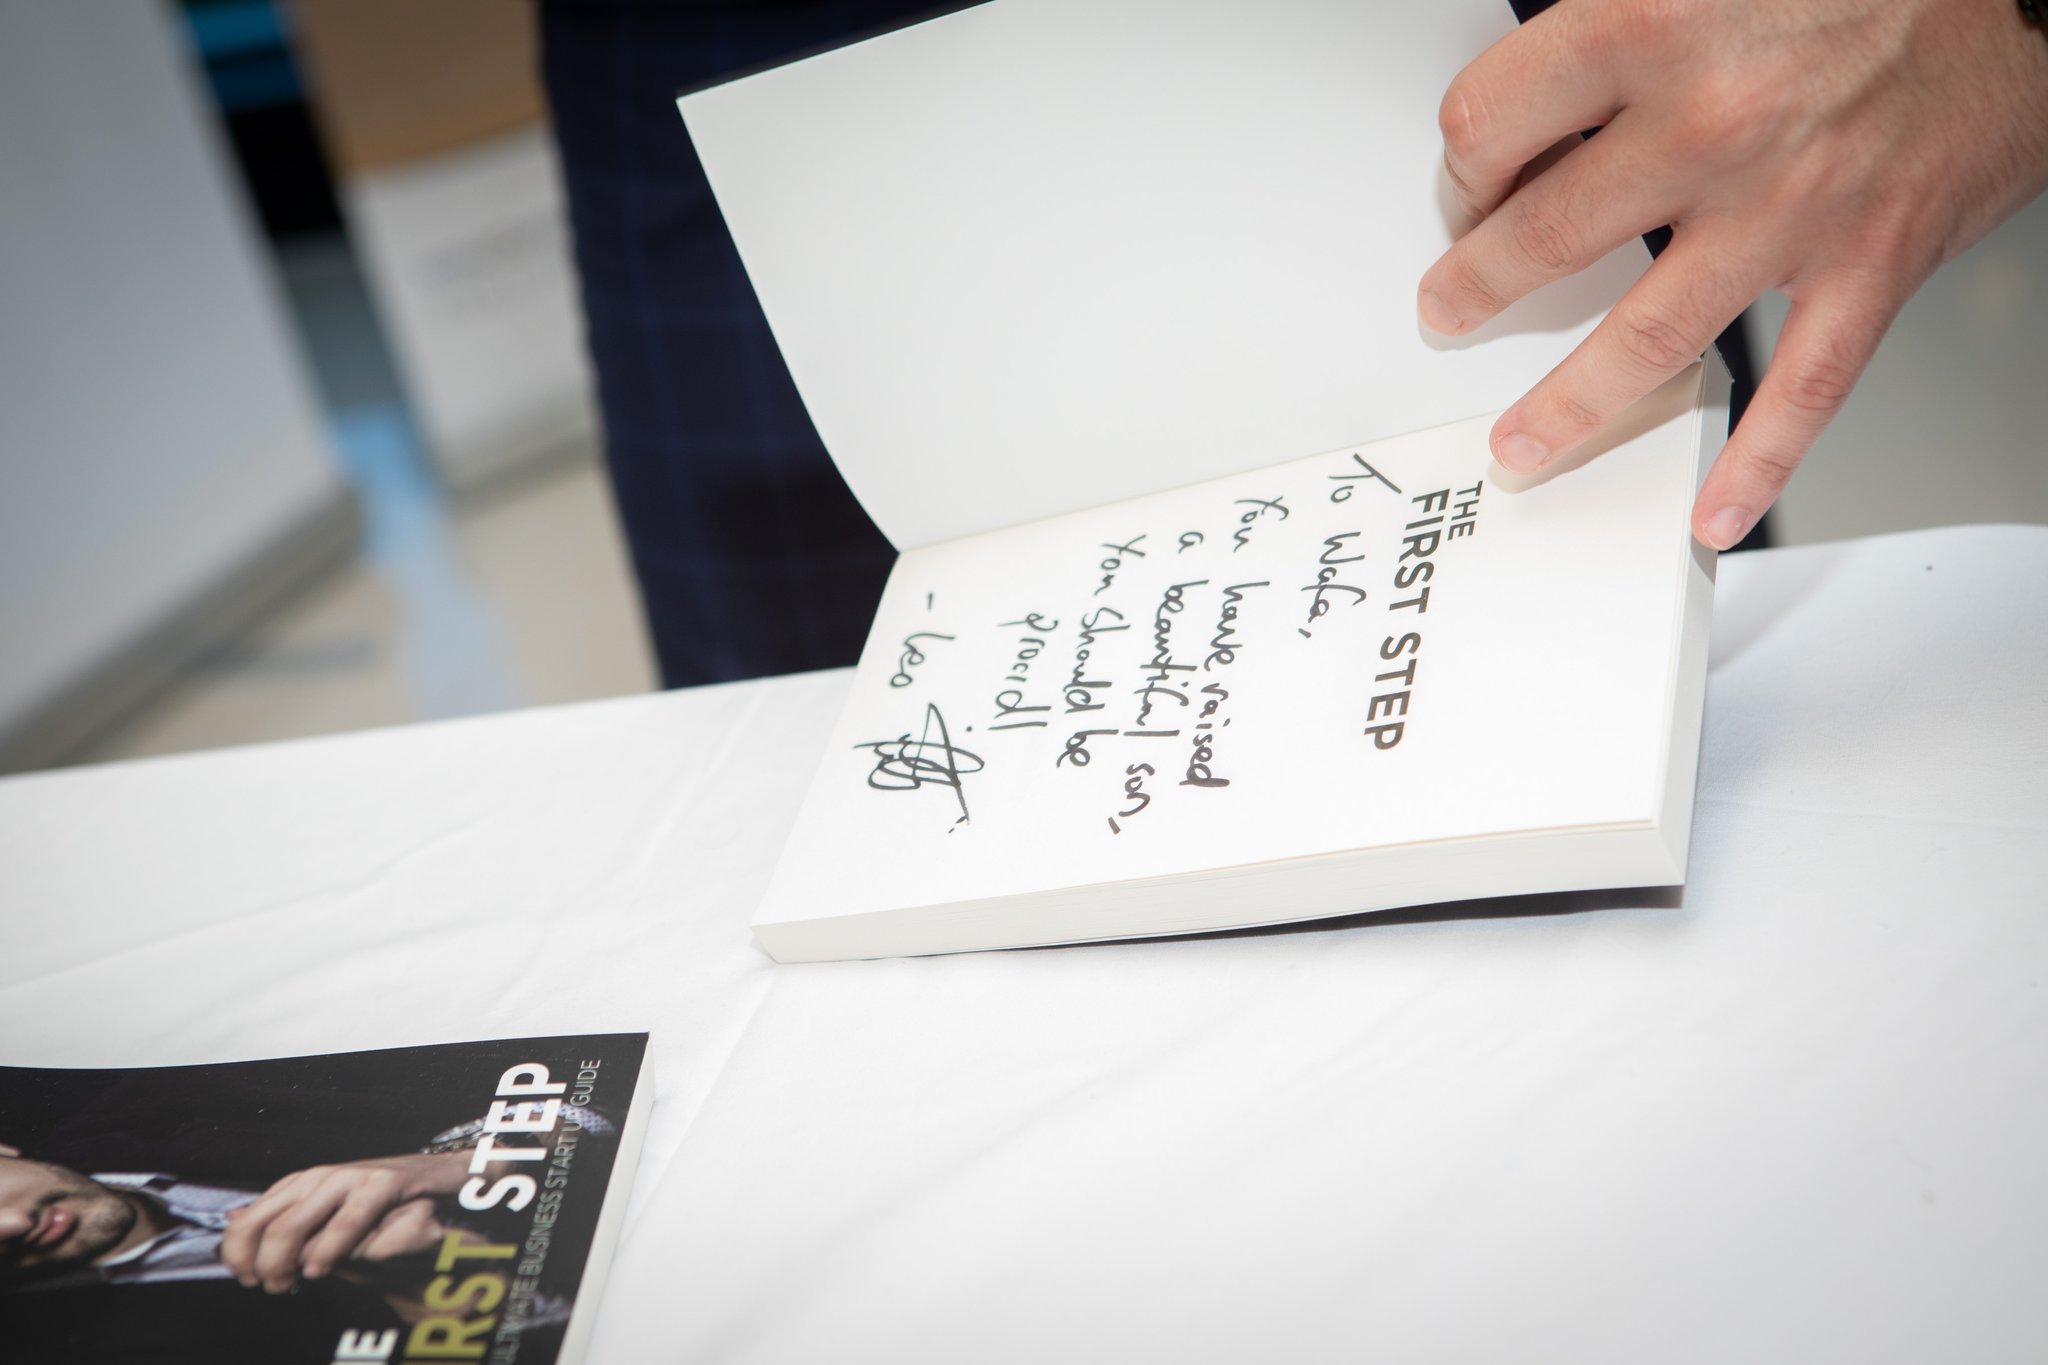 THE
FIRST STEP
To Wafa,
You have raised
a beautiful son,
You should be
proud!
- Leo
THE
FIRST STEP
ULTIMATE BUSINESS STARTUP GUIDE